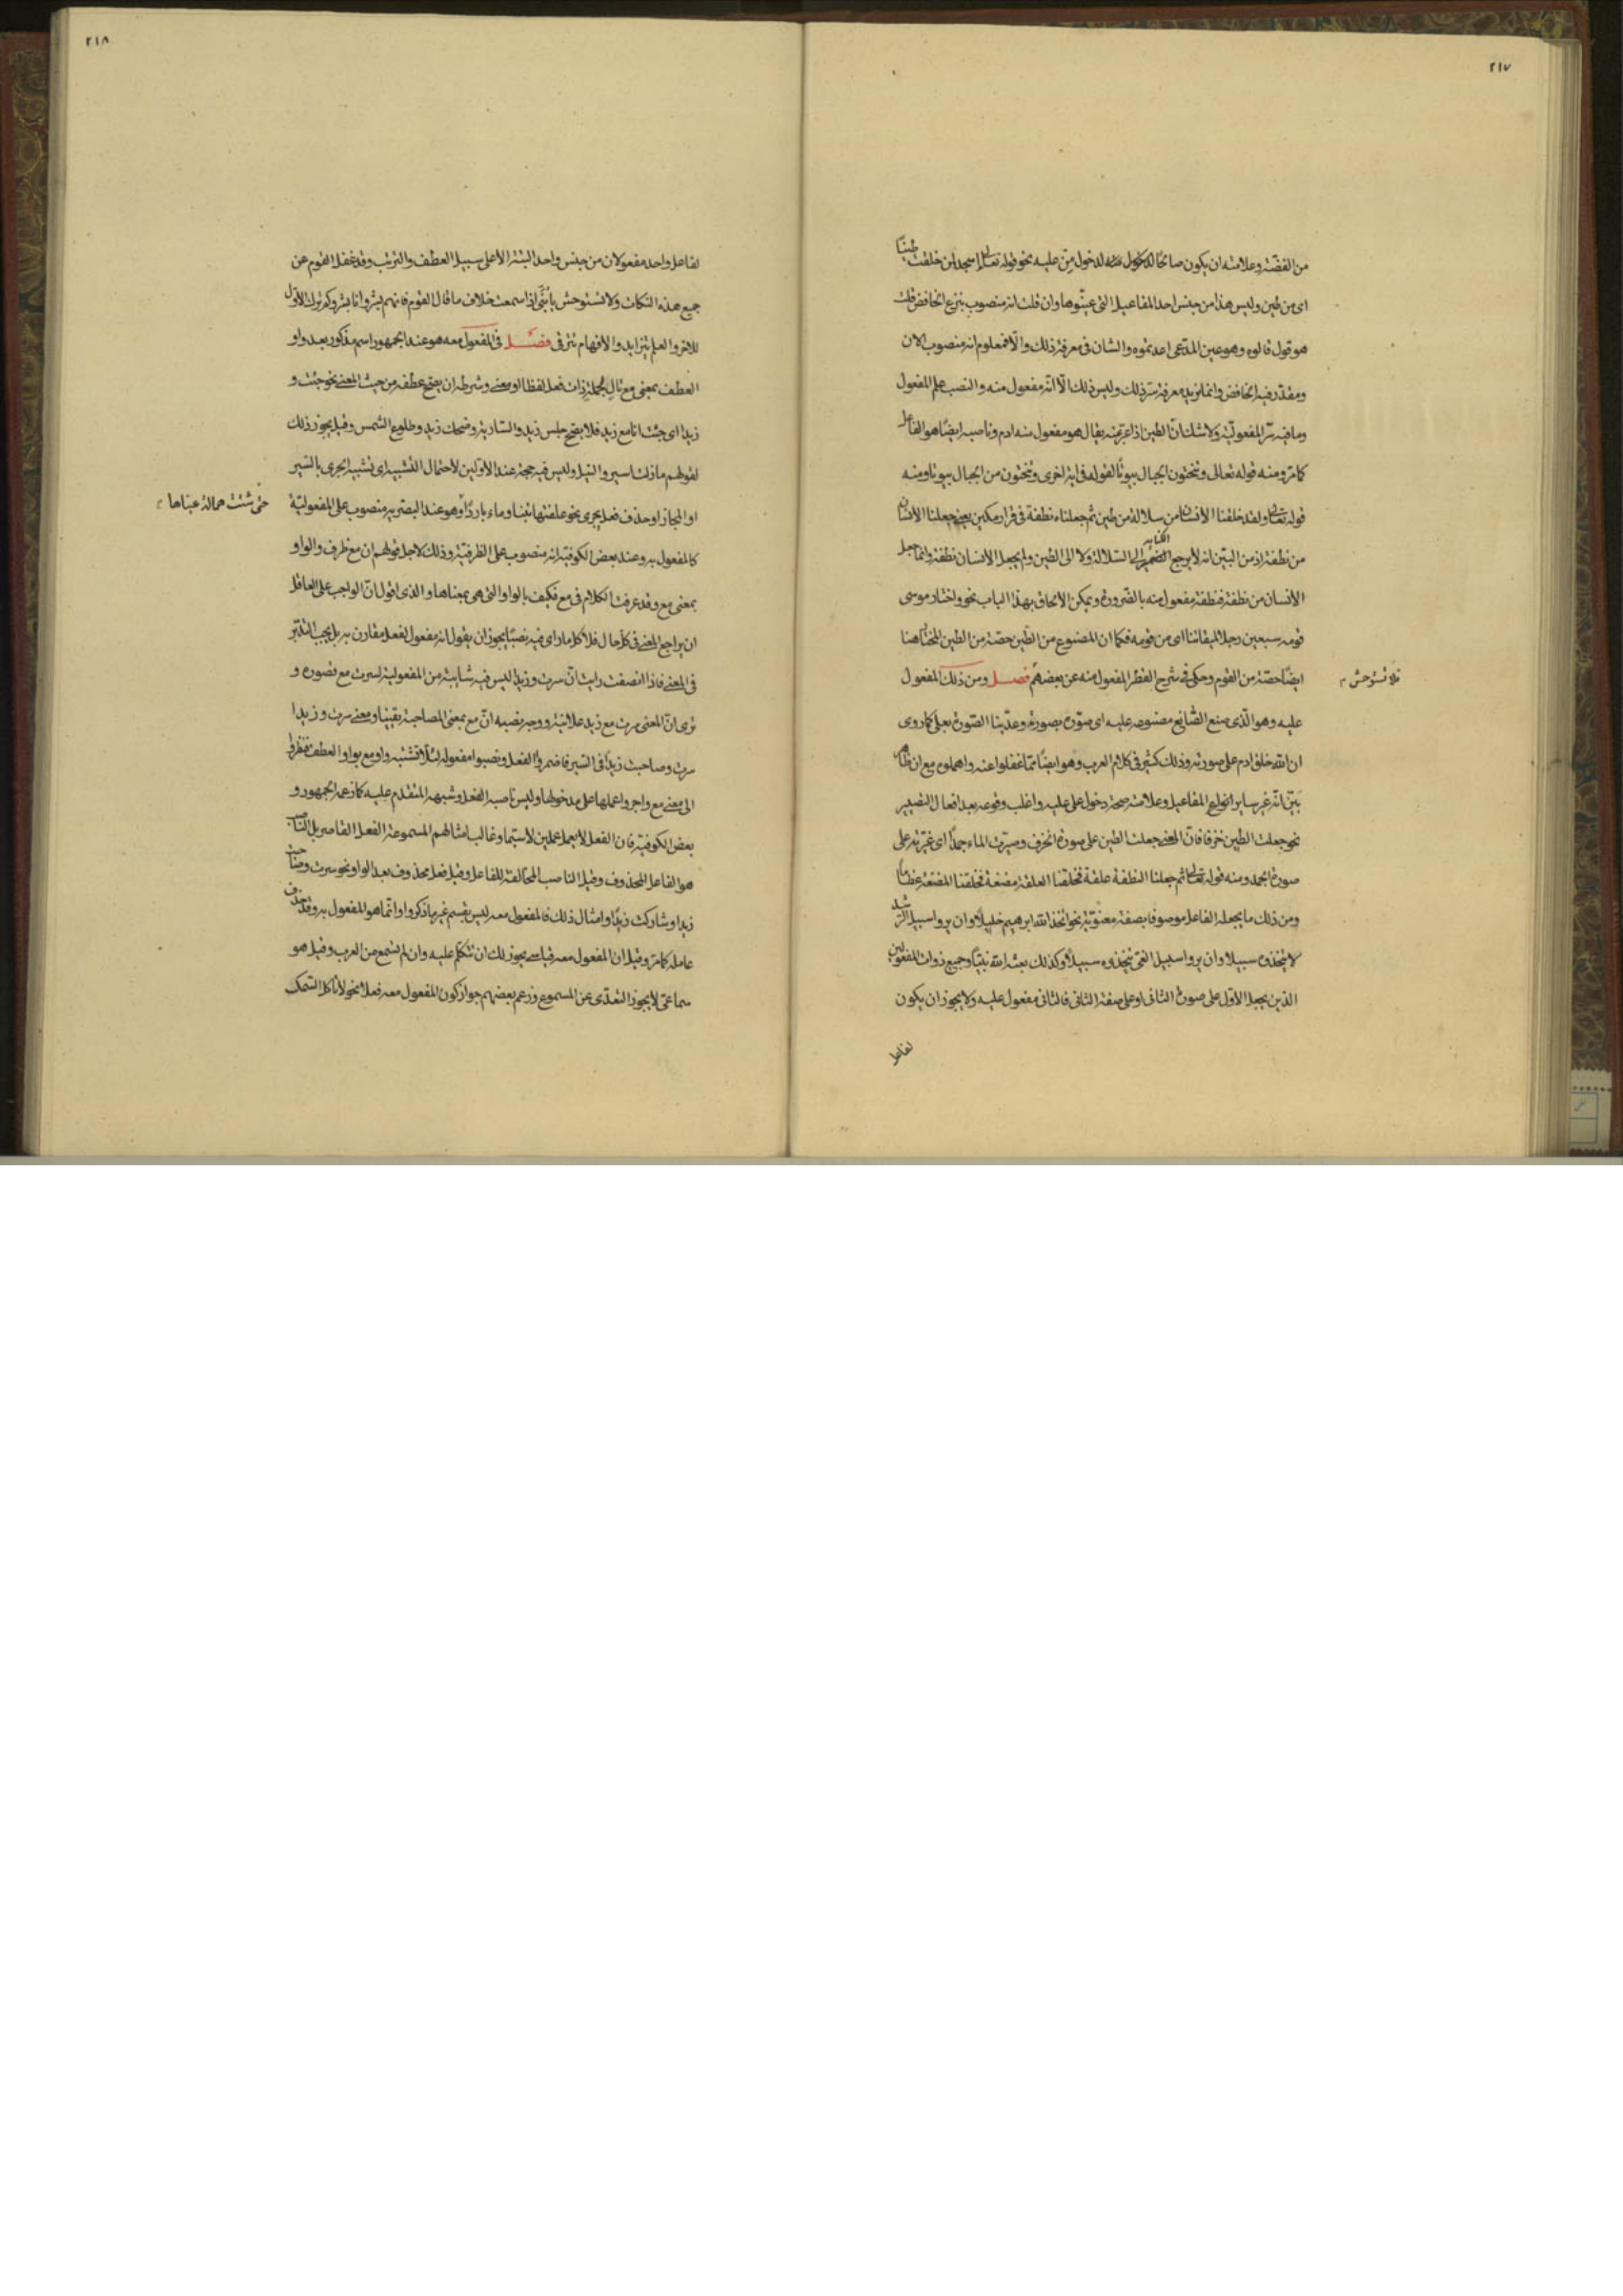 ٢١٧
من الفضّة وعلامته ان يكون صالحًا لدخول من عليه نحو قوله تعالى ءاسجد لمن خلقت طينًا
اى من طين وليس هذا من جنس احد المفاعيل التى عيّنوها وان قلت انه منصوب بنزع الخافض قلت
هو قول قالوه وهو عين المدّعى اعدتموه والشان فى معرفة ذلك والّا فمعلوم انه منصوب الان
ومقدّر فيه الخافض وانما نريد معرفة سرّ ذلك وليس ذلك الّا انّه مفعول منه والنصب علم المفعول
وما فيه سرّ المفعوليّة ولا شك انّ الطين اذا عبّر عنه يقال هو مفعول منه ادم وناصبه ايضًا هو الفاعل
كما مرّ ومنه قوله تعالى وتنحتون الجبال بيوتًا لقوله فى اية اخرى وتنحتون من الجبال بيوتا ومنه
قوله تعالى ولقد خلقنا الانسان من سلالة من طين ثم جعلناه نطفة فى قرار مكين يعنى جعلنا الانسان
من نطفة اذ من البيّن انه لا يرجع الضمير الى السلالة ولا الى الطين ولم يجعل الانسان نطفة وانما جعل
الانسان من نطفة فنطفة مفعول منه بالضرورة ويمكن الالحاق بهذا الباب نحو واختار موسى
قومه سبعين رجلا لميقاتنا اى من قومه فكما ان المصنوع من الطين حصّة من الطين المختار هنا
ايضًا حصّة من القوم وحكى فى شرح القطر المفعول منه عن بعضهم فصل ومن ذلك المفعول
فلا تستوحش
عليه وهو الّذى صنع الصّانع مصنوعه عليه اى صوّره بصورته وعدّينا الصّورة بعلى كما روى
ان الله خلق ادم على صورته وذلك كثير فى كلام العرب وهو ايضًا ممّا غفلوا عنه واهملوه مع ان
بيّن انّه غير ساير انواع المفاعيل وعلامته صحة دخول على عليه واغلب وقوعه بعد افعال التصيير
نحو جعلت الطين خزفا فانّ المعنى جعلت الطين على صورة الخزف وصيّرت الماء جمدًا اى غيّرته على
صورة الجمد ومنه قوله تعالى ثم جعلنا النطفة علقة فخلقنا العلقة مضغة فخلقنا المضغة عظامًا
ومن ذلك ما يجعله الفاعل موصوفا بصفة معنويّة نحو اتّخذ الله ابرهيم خليلًا وان يروا سبيل الرشد
لا يتخذوه سبيلا وان يروا سبيل الغىّ يتّخذوه سبيلًا وكذلك بعثه الله نبيًّا وجميع ذوات المفعولين
الذين يجعل الاوّل على صورة الثانى او على صفة الثانى فالثانى مفعول عليه ولا يجوز ان يكون
لفاعل
٢١٨
لفاعل واحد مفعولان من جنس واحد البتة الّا على سبيل العطف والترتيب وقد غفل القوم عن
جميع هذه النكات ولا تستوحش يا بُنىّ اذا سمعت خلاف ما قال القوم فانهم بشر وانا بشر وكم ترك الاوّل
للاخر والعلم يتزايد والافهام تترقى فصل فى المفعول معه هو عند الجمهور اسم مذكور بعد واو
العطف بمعنى مع تالٍ لجملة ذات فعل لفظا او معنى وشرطه ان يصحّ عطفه من حيث المعنى نحو جئت و
زيدا اى جئت انا مع زيد فلا يصحّ جلس زيد والسارية وضحك زيد وطلوع الشمس وقيل يجوز ذلك
لقولهم ما زلت اسير والنيل وليس فيه حجة عند الاوّلين لاحتمال التشبيه اى تشبيه الجرى بالسير
او المجاز او حذف فعل يجرى نحو علفتها تبنا وماء باردًا وهو عند البصرية منصوب على المفعوليّة
حتى شتت همالة عيناها
كالمفعول به وعند بعض الكوفيّة انه منصوب على الظرفيّة وذلك لاجل قولهم ان مع ظرف والواو
بمعنى مع وقد عرفت الكلام فى مع فكيف بالواو التى هى بمعناها والذى اقول انّ الواجب على العاقل
ان يراجع المعنى فى كلّ حال فلا كلما راى فيه نصبًا يجوز ان يقول انه مفعول لفعل مقارن به بل يجب التدبّر
فى المعنى فاذا انصفت رايت انّ سرت وزيدًا ليس فيه شايبة من المفعولية لسرت مع قصوره و
ترى انّ المعنى سرت مع زيد علانية ووجه نصبه انّ مع بمعنى المصاحبة يقينا ومعنى سرت وزيدا
سرت وصاحبت زيدًا فى السير فاضمروا الفعل ونصبوا مفعوله لئلّا تشتبه واو مع بواو العطف فنظروا
الى معنى مع واجروا عملها على مدخولها وليس ناصبه الفعل وشبهه المتقدم عليه كما زعمه الجمهور و
بعض الكوفية فان الفعل لا يعمل عملين لا سيّما وغالب امثالهم المسموعة الفعل القاصر بل الناصب
هو الفاعل المحذوف وقيل الناصب المخالفة للفاعل وقيل فعل محذوف بعد الواو نحو سرت وصاحبت
زيدا وشاركت زيدًا وامثال ذلك فالمفعول معه ليس بقسم غير ما ذكروا وانّما هو المفعول به وقد حذف
عامله كما مرّ وقيل ان المفعول معه قياسى يجوز لك ان تتكلّم عليه وان لم تسمع من العرب وقيل هو
سماعىّ لا يجوز التعدّى عن المسموع وزعم بعضهم جواز كون المفعول معه فعلا نحو لا تاكل السّمك